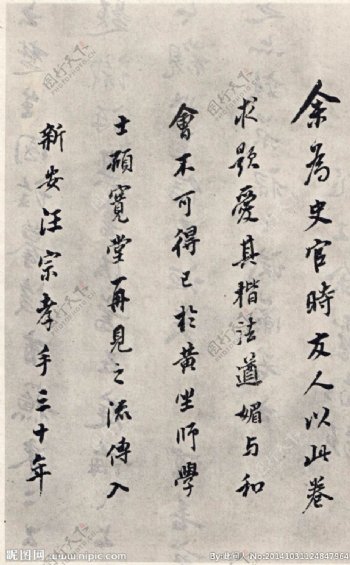 余為史官時友人以此卷
求題愛其楷法遒媚与和
會不可得已於黃坐師學
士碩寬堂再見之流傳入
新安汪宗孝手三十年
昵图网 www.nipic.com
NO:20141031124847964